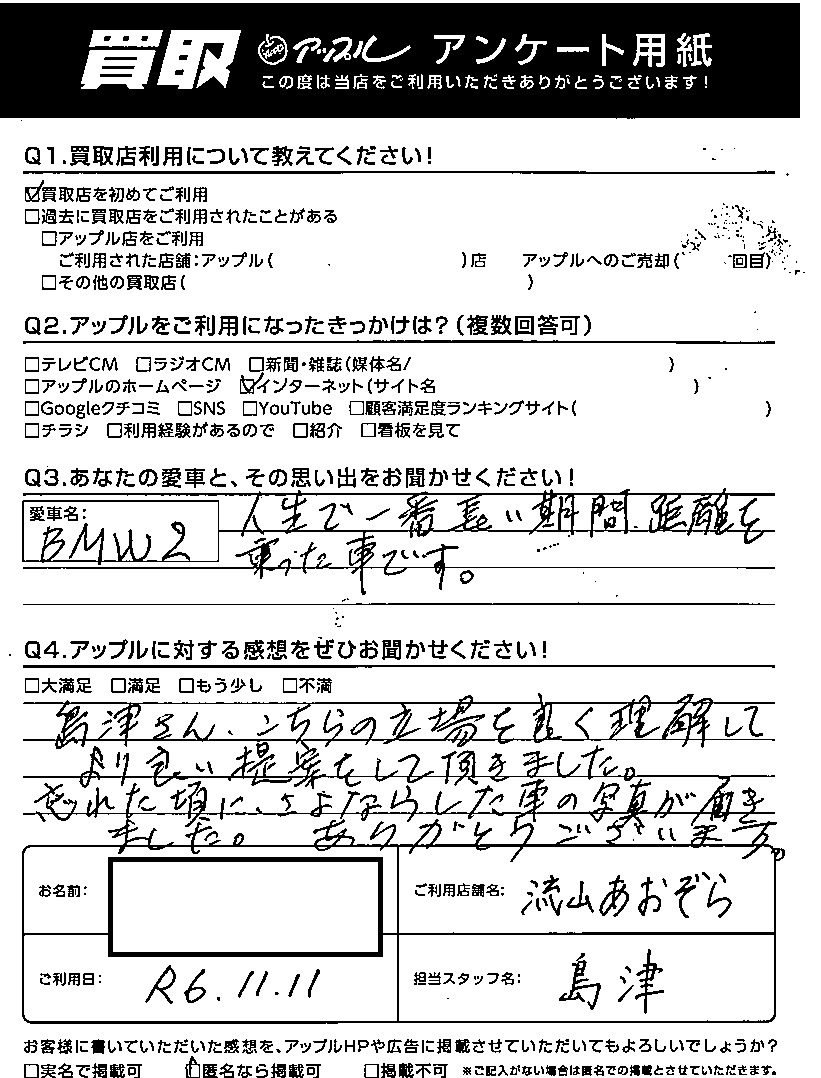 買取 アップル アンケート用紙
この度は当店をご利用いただきありがとうございます!
Q1.買取店利用について教えてください!
☑買取店を初めてご利用
□過去に買取店をご利用されたことがある
□アップル店をご利用
ご利用された店舗:アップル( )店 アップルへのご売却( 回目)
□その他の買取店( )
Q2.アップルをご利用になったきっかけは?(複数回答可)
□テレビCM □ラジオCM □新聞・雑誌(媒体名/ )
□アップルのホームページ ☑インターネット(サイト名 )
□Googleクチコミ □SNS □YouTube □顧客満足度ランキングサイト( )
□チラシ □利用経験があるので □紹介 □看板を見て
Q3.あなたの愛車と、その思い出をお聞かせください!
愛車名:
BMW2
人生で一番長い期間、距離を
乗った車です。
Q4.アップルに対する感想をぜひお聞かせください!
□大満足 □満足 □もう少し □不満
島津さん、こちらの立場を良く理解して
より良い提案をして頂きました。
忘れた頃に、さよならした車の写真が届き
ました。 ありがとうございます。
お名前:
ご利用店舗名: 流山あおぞら
ご利用日: R6.11.11
担当スタッフ名: 島津
お客様に書いていただいた感想を、アップルHPや広告に掲載させていただいてもよろしいでしょうか?
□実名で掲載可 ☑匿名なら掲載可 □掲載不可 *ご記入がない場合は匿名での掲載とさせていただきます。